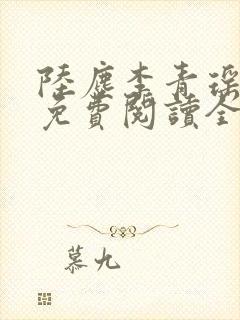 陸塵李青瑤
免費閱讀全
慕九